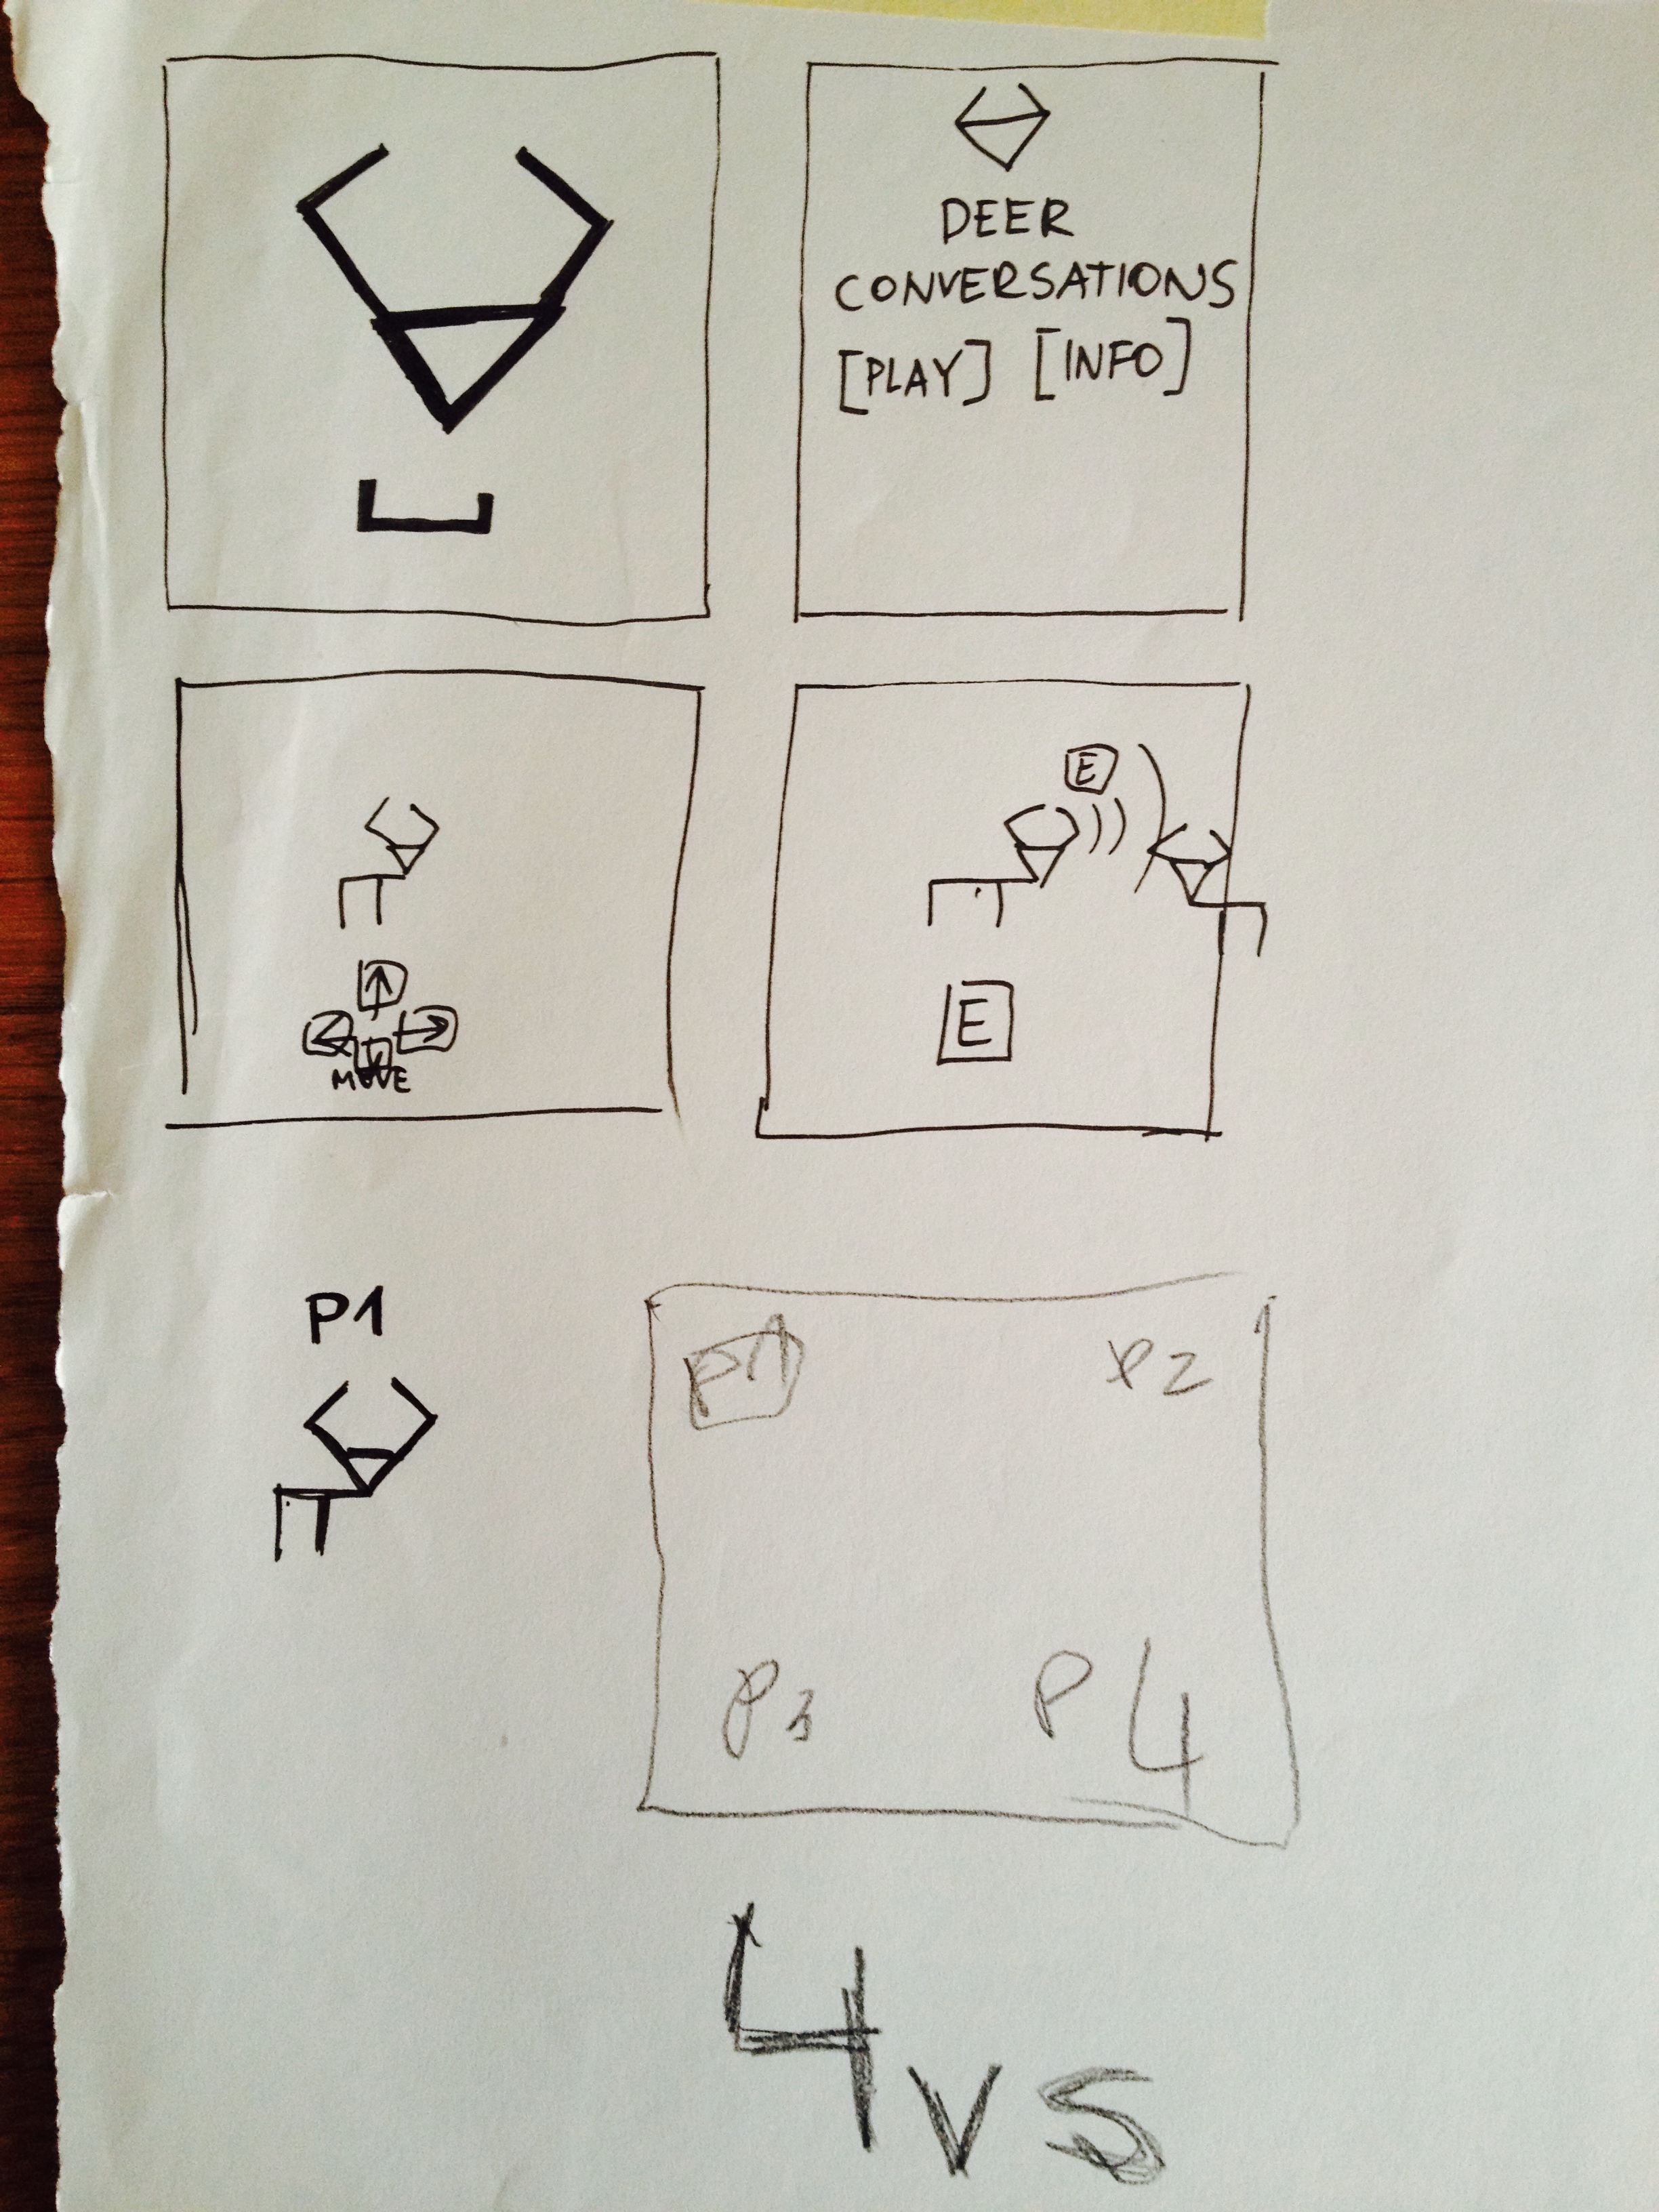 DEER
CONVERSATIONS
[PLAY] [INFO]
MOVE
E
E
P1
P1
P2
P3
P4
4 VS